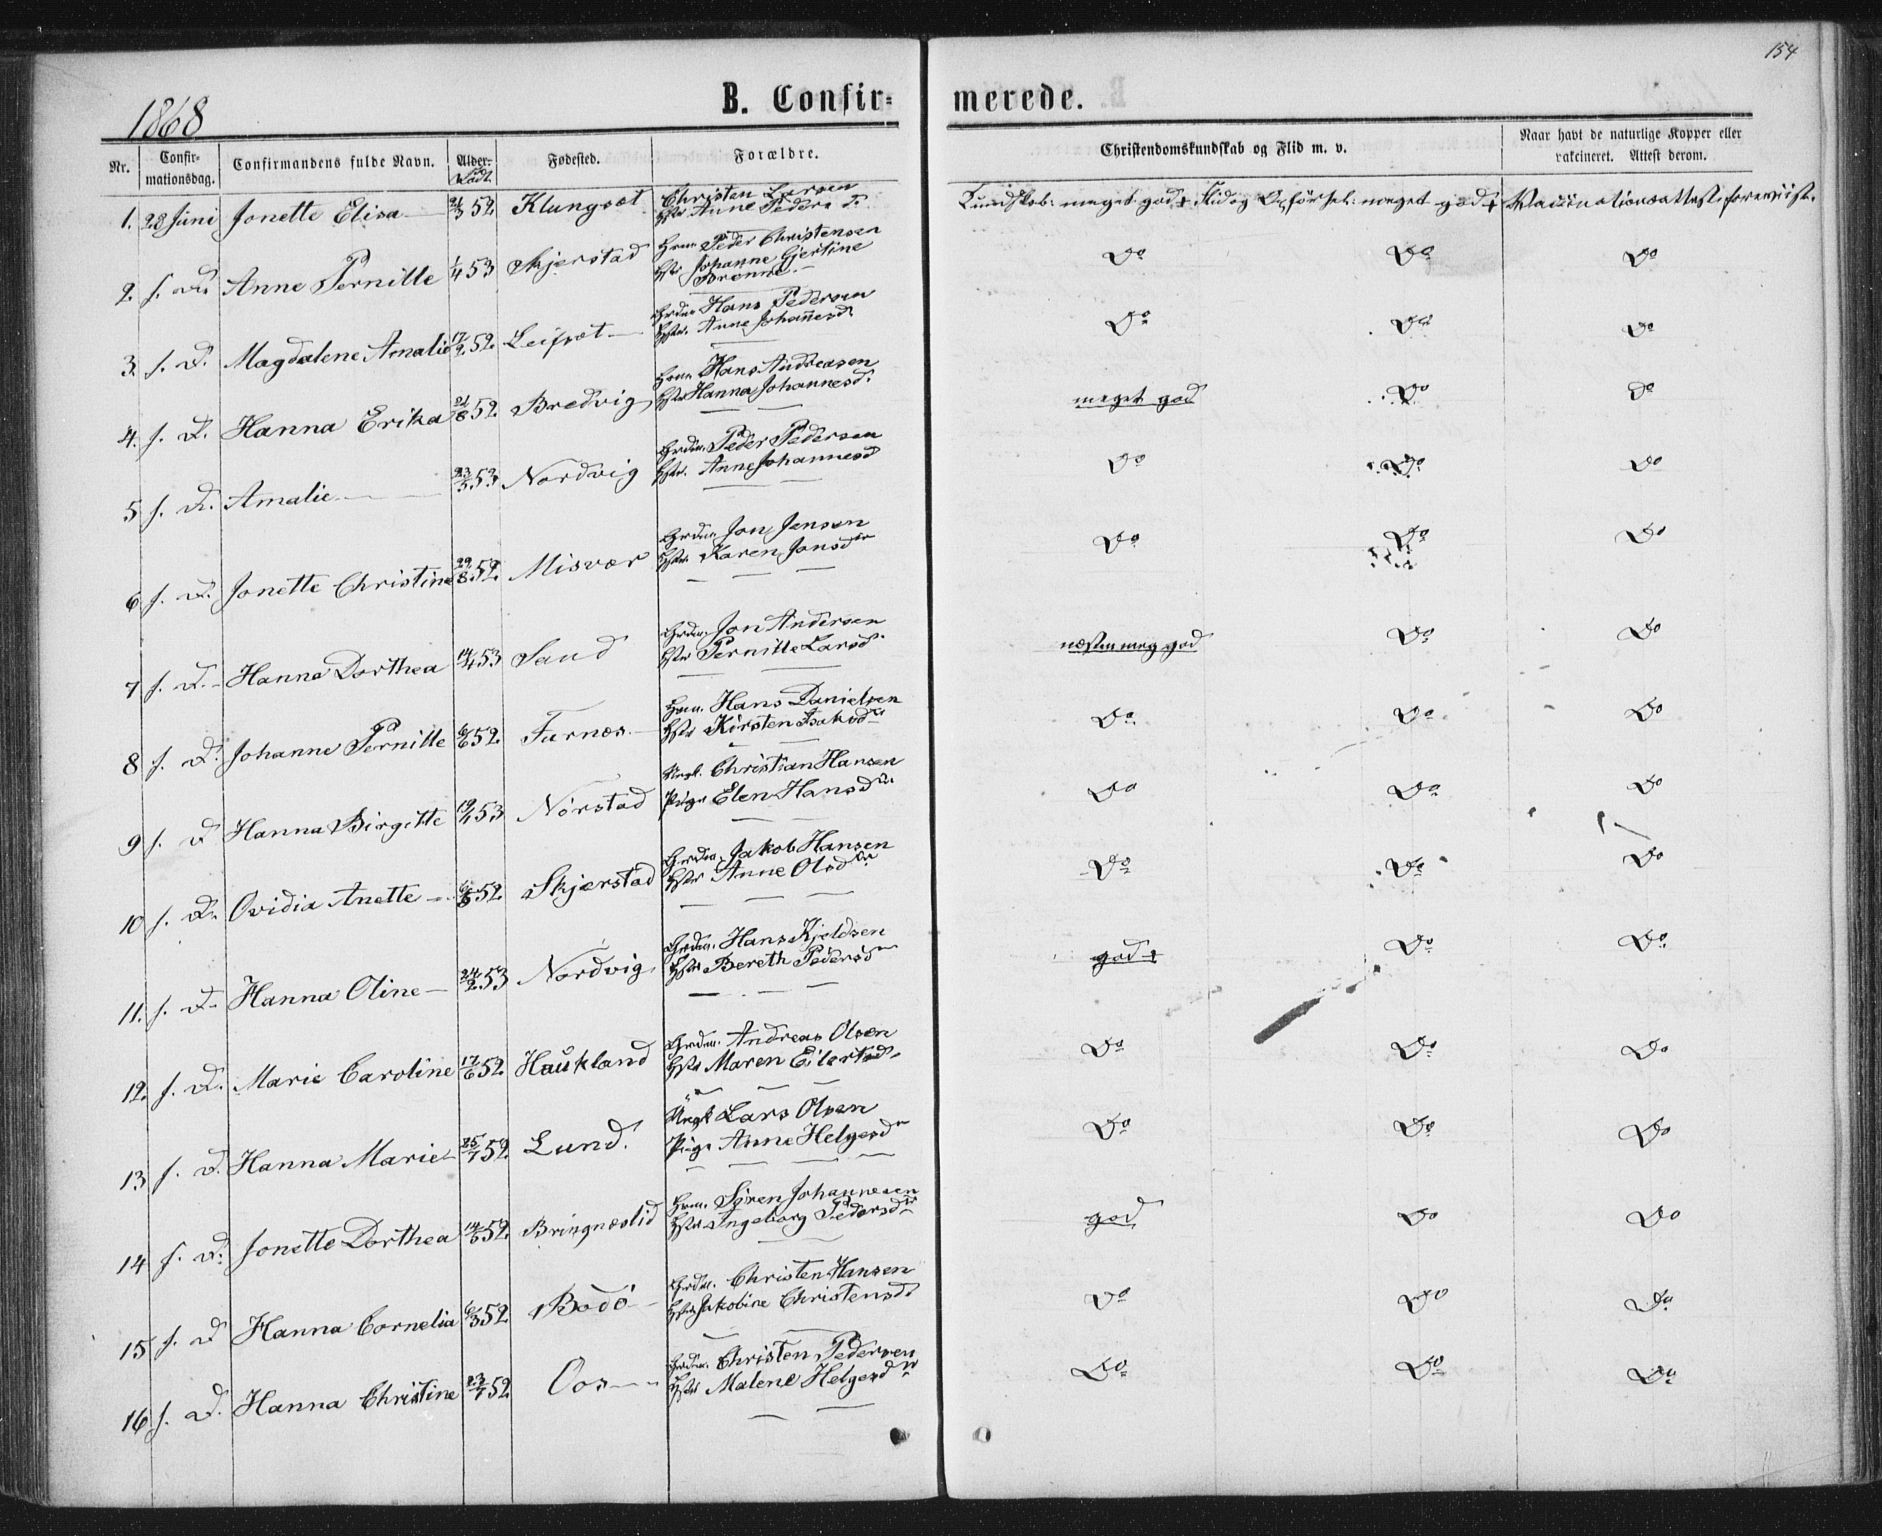 154
1868
B. Confir- merede.
Nr. Confir-mationsdag. Confirmandens fulde Navn. Alder. Födt. Fødested. Forældre. Christendomskundskab og Flid m. v. Naar havt de naturlige Kopper eller vakcineret. Attest derom.
1. 28 Juni Jonette Elisa 52 Klungset Christen Larsen
Anne Peders d. Kundskab: meget god Flid og Opförsel: meget god Vaccinationsattest forevist.
2. s. D. Anne Pernille 1/4 53 Skjerstad Peder Christensen
Johanne Gjertine
Brenne Do Do Do
3. s. D. Magdalene Amalie 17/9 52. Leifset Hans Pedersen
Anne Johannesd. Do Do Do
4. s. D. Hanna Erika 21/8 52. Bredvig Hans Andreasen
Hanna Johannesd. meget god Do Do
5 s. D. Amalie 53 Nordvig Peder Pedersen
Anne Johannesd Do Do Do
6 s. D. Jonette Christine 29/8 52. Misvær Jon Jensen
Karen Jonsdr Do Do Do
7 s. D. Hanna Dorthea 53 Sand Jon Andersen
Pernille Larsd. næsten meg god Do Do
8 s. D. Johanne Pernille 52. Furnes Hans Danielsen
Kirsten Isaksd Do Do Do
9 s. D Hanna Birgitte 53 Nörstad Ungk. Christian Hansen
Pige Elen Hansd Do Do Do
10 s. D. Ovidia Anette 52. Skjerstad Jakob Hansen
Anne Olsd Do Do Do
11. s. D. Hanna Oline 24/2 53 Nordvig Hans Kjeldsen
Bereth Pedersd god Do Do
12. s. D. Marie Caroline 17/6 52. Haukland Andreas Olsen
Maren Eilertsd. Do Do Do
13 s. D. Hanna Marie 25/7 52. Lund. Ungk Lars Olsen
Pige Anne Helgesd Do Do Do
14 s. D. Jonette Dorthea 52. Bringneslid Sören Johannesen
Ingeborg Pedersd god Do Do
15 s. D Hanna Cornelia 52. Bodö Christen Hansen
Jakobine Christensd Do Do Do
16 s. D. Hanna Christine 23/7 52. Oos Christen Pedersen
Malene Helgesd Do Do Do